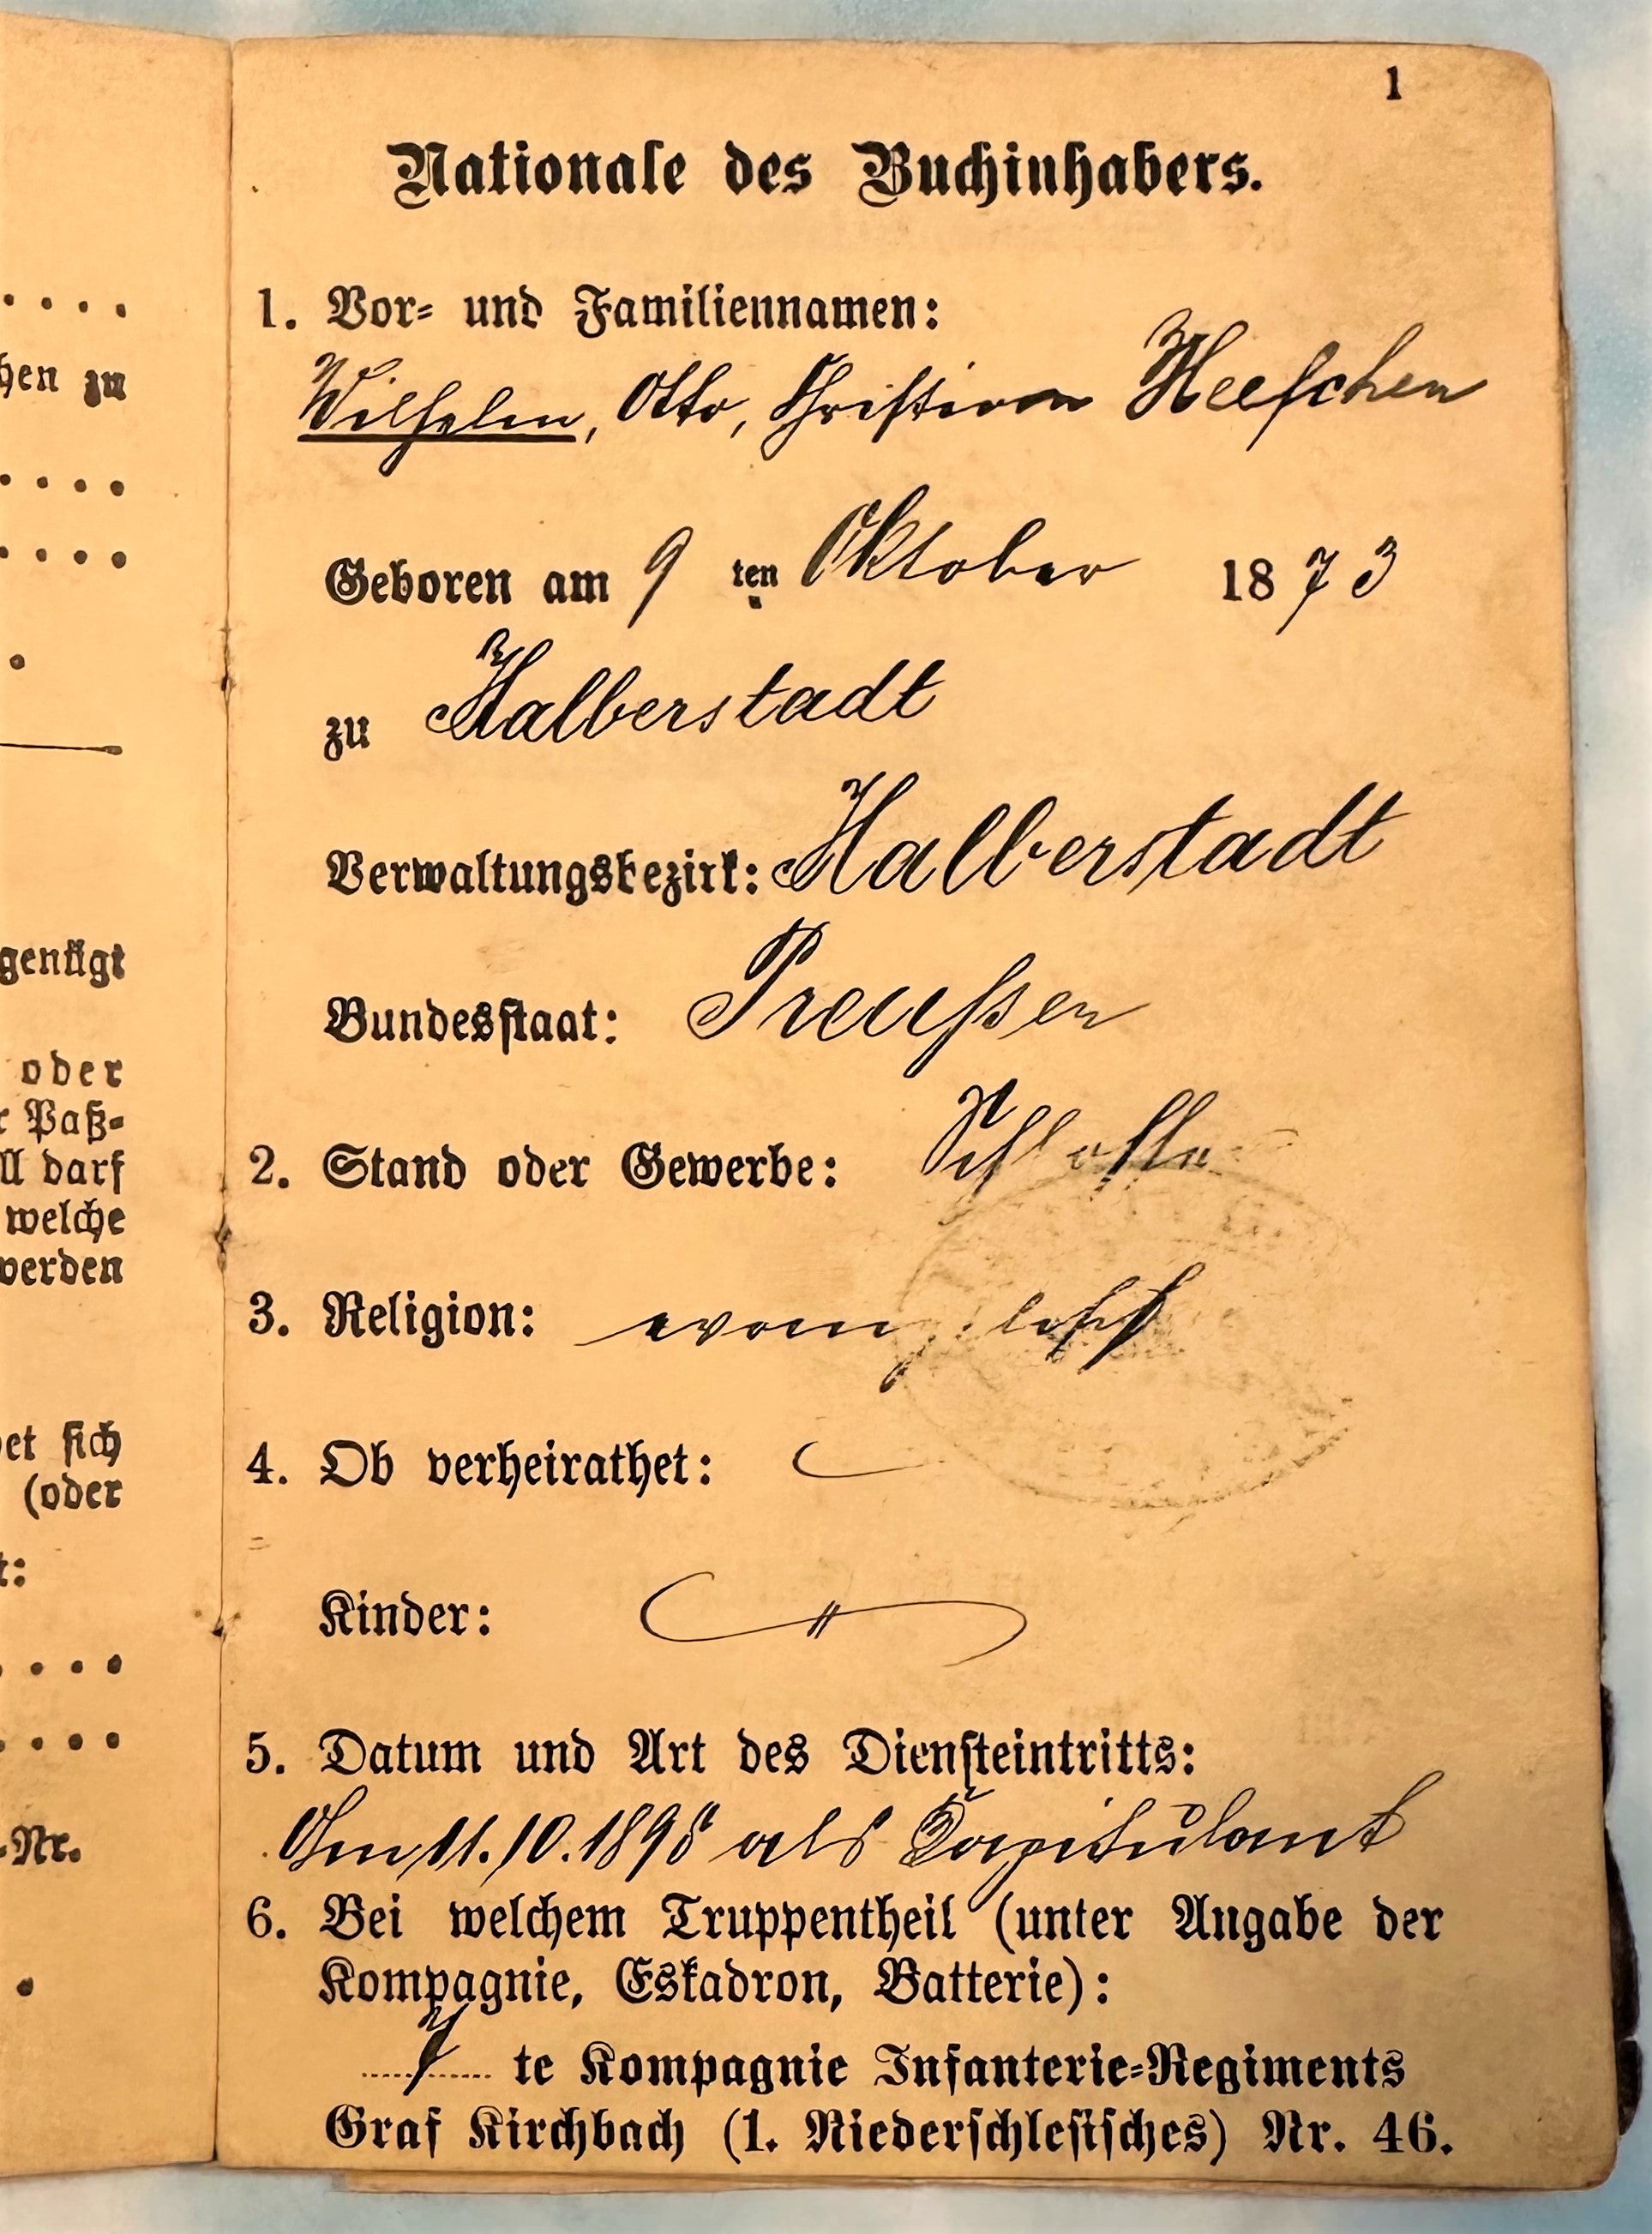 1
Nationale des Buchinhabers.
1. Vor- und Familiennamen:
Wilhelm, Otto, Christian Heeschen
Geboren am 9 ten Oktober 1873
zu Halberstadt
Verwaltungsbezirk: Halberstadt
Bundesstaat: Preussen
2. Stand oder Gewerbe: Schlosser
3. Religion: evangelisch
4. Ob verheirathet:
Kinder:
5. Datum und Art des Diensteintritts:
Am 11.10.1895 als Kapitulant
6. Bei welchem Truppentheil (unter Angabe der
Kompagnie, Eskadron, Batterie):
te Kompagnie Infanterie-Regiments
Graf Kirchbach (1. Niederschlesisches) Nr. 46.
hen zu
genügt
oder
r Paß-
ll darf
welche
werden
et sich
(oder
t:
-Nr.